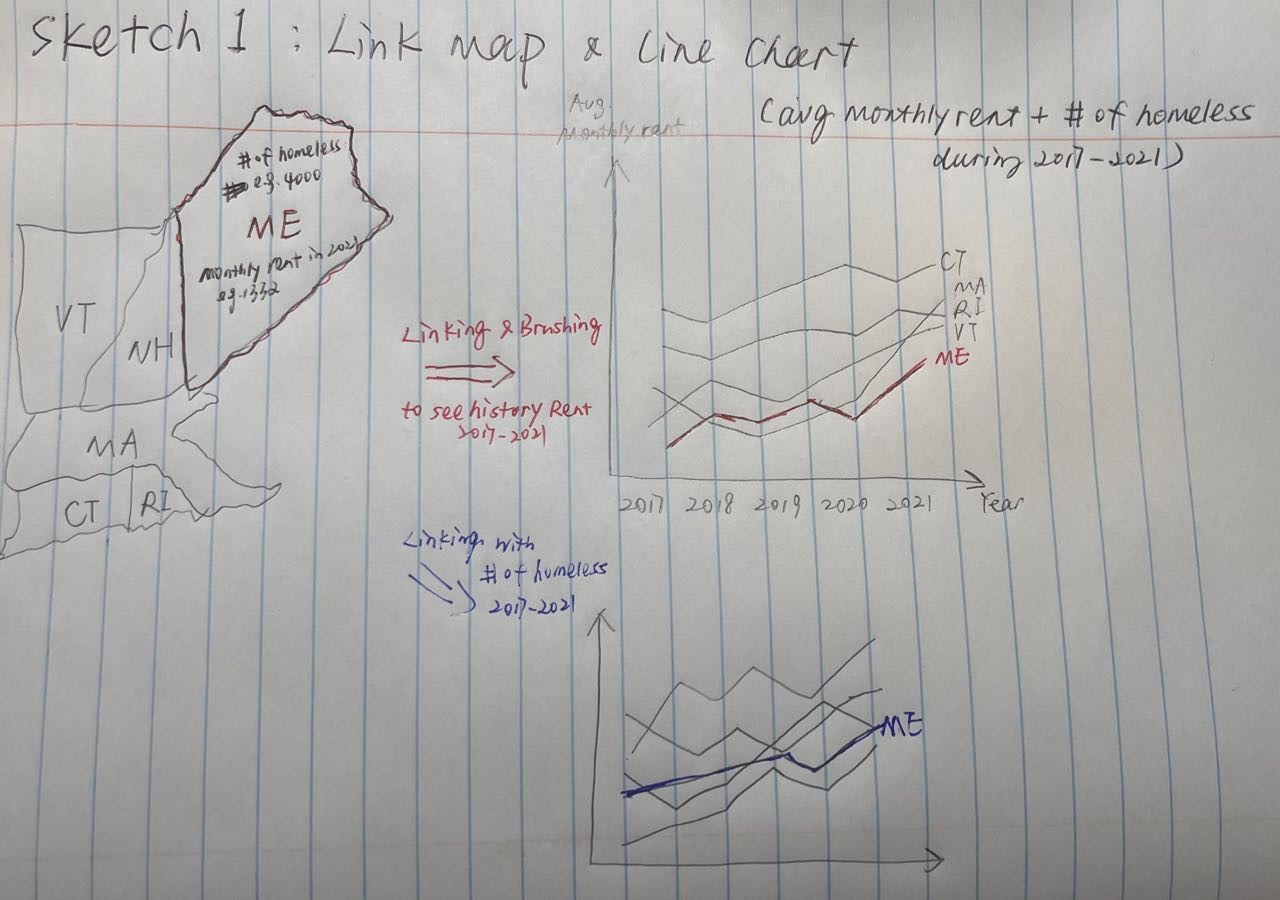 Sketch 1 : Link map & Line Chart
(avg monthly rent + # of homeless
during 2017-2021)
# of homeless
eg. 4000
ME
monthly rent in 2021
eg. 1332
VT
NH
MA
CT
RI
Linking & Brushing
to see history Rent
2017-2021
Avg.
Monthly rent
CT
MA
RI
VT
ME
2017 2018 2019 2020 2021 Year
Linking with
# of homeless
2017-2021
ME